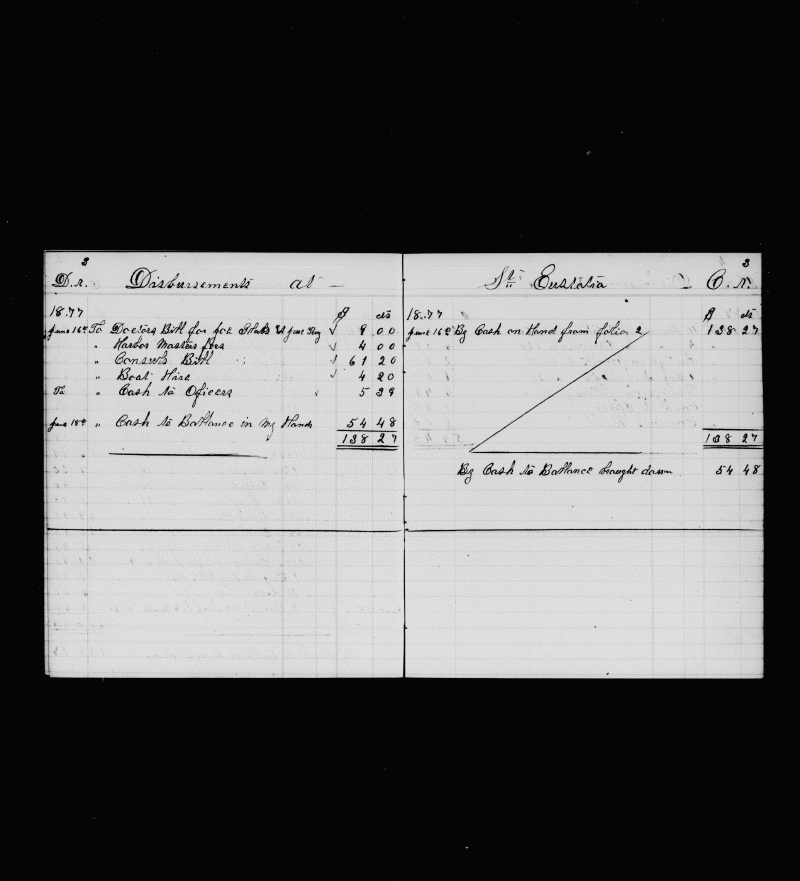 3
D.r. Disbursements at –
18.77 $ cts
June 16th To Doctors Bill for √ 9 00
" Harbor Masters fees √ 4 00
" Consuls Bill √ 61 20
" Boat Hire √ 4 20
To " Cash to Oficers √ 5 39
June 18th " Cash to Ballance in My Hands 54 48
138 27
3
St. Eustatia – C.r.
18.77 $ cts
June 16th By Cash on Hand from folio 2 138 27
138 27
By Cash to Ballance braught down 54 48